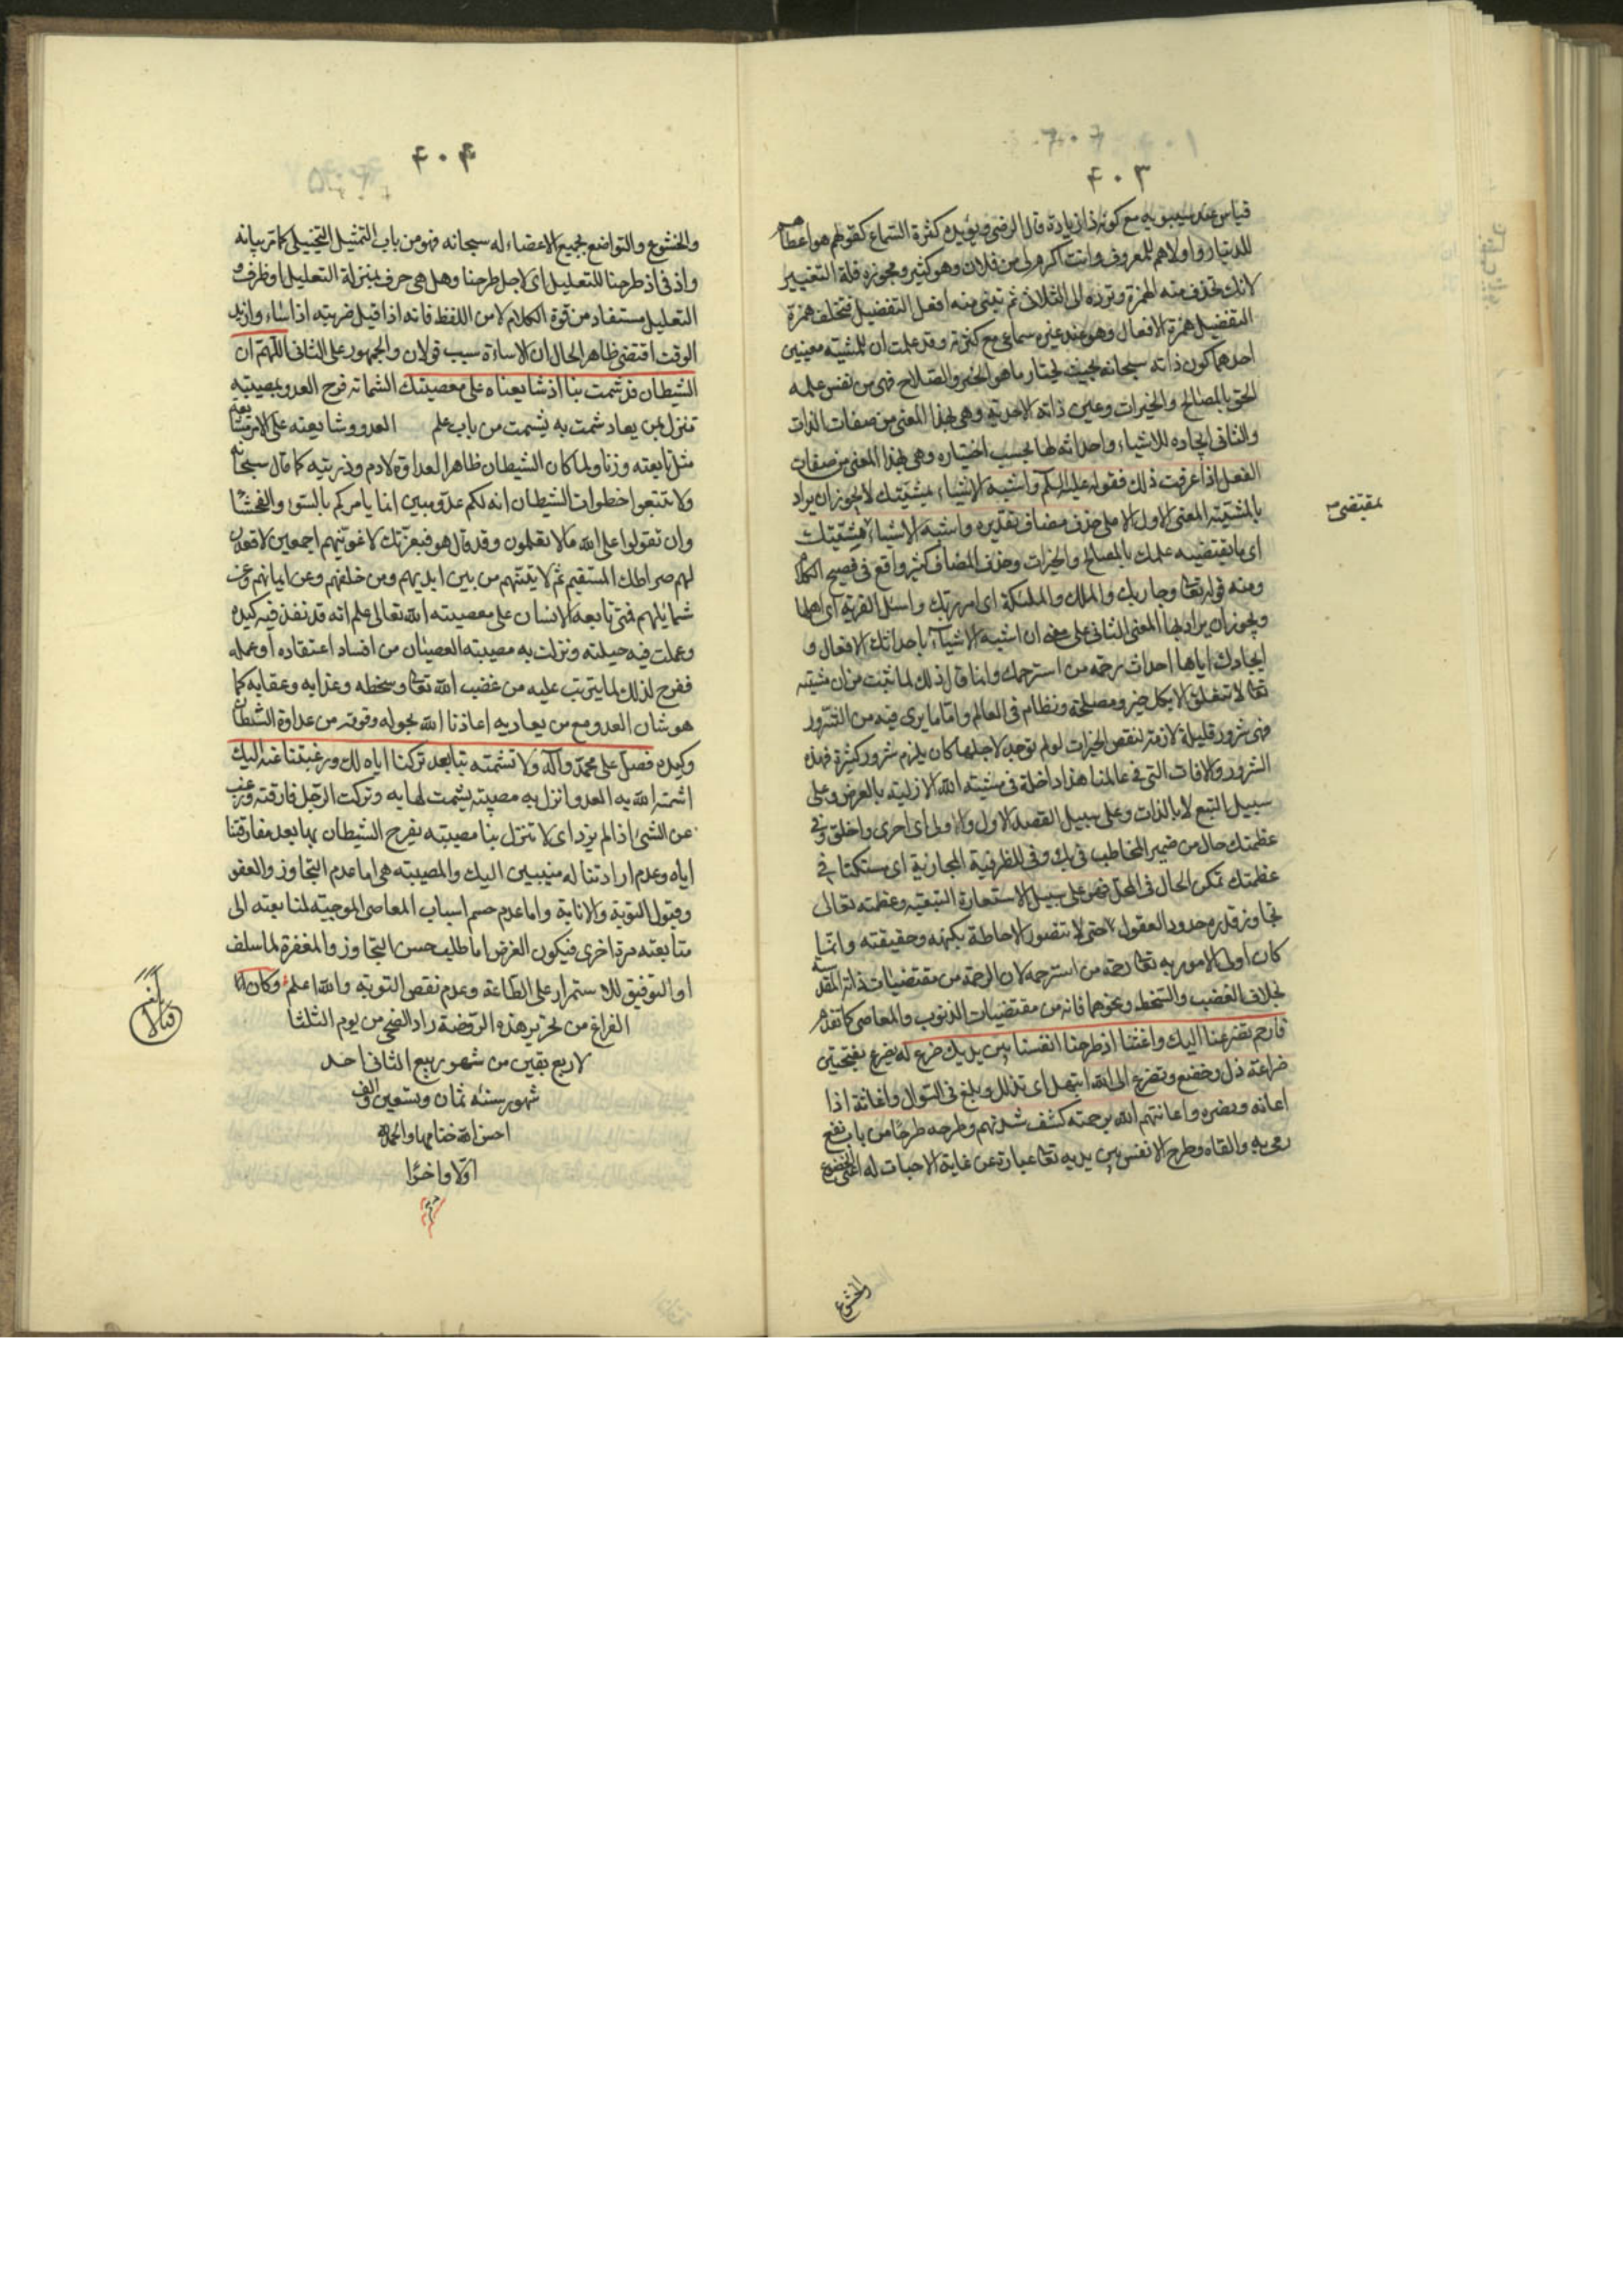 ۴۰۳
قياس عند سيبويه مع كونه ذا زيادة قال الرضى ويؤيده كثرة السماع كقولهم هو اعطاهم
للدينار واولاهم للمعروف وانت اكرم لى من فلان وهو كثير ومجوزه قلة التغيير
لانك تحذف منه الهمزة وترده الى الثلاثى ثم تبنى منه افعل التفضيل فتخلف همزة
التفضيل همزة الافعال وهو عند غيره سماعى مع كثرته وقد علمت ان للمشية معنيين
احدهما كون ذاته سبحانه بحيث يختار ما هو الخير والصلاح فهى من نفس علمه
الحق بالمصالح والخيرات وعين ذاته الاحدية وهى بهذا المعنى من صفات الذات
والثانى ايجاده للاشياء واحداثه لها بحسب اختياره وهى بهذا المعنى من صفات
الفعل اذا عرفت ذلك فقوله عليه السلم واشبه الاشياء بمشيتك لا يجوز ان يراد
بالمشية المعنى الاول الا على حذف مضاف تقديره واشبه الاشياء بمشيتك
بمقتضى
اى بما يقتضيه علمك بالمصالح والخيرات وحذف المضاف كثير واقع فى فصيح الكلام
ومنه قوله تعالى وجاء ربك والملك والملئكة اى امر ربك واسئل القرية اى اهلها
ويجوز ان يراد بها المعنى الثانى على معنى ان اشبه الاشياء باحداثك الافعال و
ايجادك اياها احداث رحمة من استرحمك وانما قال ذلك لما ثبت من ان مشيته
تعالى لا تتعلق الا بكل خير ومصلحة ونظام فى العالم واما ما يرى فيه من الشرور
فهى شرور قليلة لازمة لنقص الخيرات لو لم توجد لاجلها كان يلزم شرور كثيرة فهذه
الشرور والافات التى فى عالمنا هذا داخلة فى مشية الله الازلية بالعرض وعلى
سبيل التبع لا بالذات وعلى سبيل القصد الاول والاولى اى احرى واخلق وفى
عظمتك حال من ضمير المخاطب فى بك وفى للظرفية المجازية اى مستكنا فى
عظمتك تمكن الحال فى المحل فهو على سبيل الاستعارة التبعية وعظمته تعالى
تجاوز قدره حدود العقول حتى لا تتصور الاحاطة بكنهه وحقيقته وانما
كان اولى الامور به تعالى رحمة من استرحمه لان الرحمة من مقتضيات ذاته المقدسة
بخلاف الغضب والسخط ونحوهما فانه من مقتضيات الذنوب والمعاصى كما تقدم
فارحم تضرعنا اليك واغثنا اذ طرحنا انفسنا بين يديك ضرع له يضرع بفتحتين
ضراعة ذل وخضع وتضرع الى الله ابتهل اى تذلل وبلغ فى السؤال واغاثة اذا
اعانه ونصره واغاثهم الله برحمته كشف شدتهم وطرحه طرحا من باب نفع
رمى به والقاه وطرح الانفس بين يديه تعالى عبارة عن غاية الاخبات له اعنى الخضوع
والخشوع
۴۰۴
والخشوع والتواضع بجميع الاعضاء له سبحانه فهو من باب التمثيل التخييلى كما مر بيانه
واذ فى اذ طرحنا للتعليل اى لاجل طرحنا وهل هى حرف بمنزلة التعليل او ظرف و
التعليل مستفاد من قوة الكلام لا من اللفظ فانه اذا قيل ضربته اذ اساء واريد
الوقت اقتضى ظاهر الحال ان الاساءة سبب قولان والجمهور على الثانى اللهم ان
الشيطان قد شمت بنا اذ شايعناه على معصيتك الشماتة فرح العدو بمصيبة
تنزل بمن يعاد شمت به يشمت من باب علم العدو وشايعته على الامر مشايعة
مثل تابعته وزنا ولما كان الشيطان ظاهر العداوة لادم وذريته كما قال سبحانه
ولا تتبعوا خطوات الشيطان انه لكم عدو مبين انما يامركم بالسوء والفحشاء
وان تقولوا على الله ما لا تعلمون وقد قال هو فبعزتك لاغوينهم اجمعين لاقعدن
لهم صراطك المستقيم ثم لاتينهم من بين ايديهم ومن خلفهم وعن ايمانهم وعن
شمايلهم فمتى تابعه الانسان على معصيته الله تعالى علم انه قد نفذ فيه كيده
وعملت فيه حيلته ونزلت به مصيبة العصيان من افساد اعتقاده او عمله
ففرح لذلك لما يترتب عليه من غضب الله تعالى وسخطه وعذابه وعقابه كما
هو شان العدو مع من يعاديه اعاذنا الله بحوله وقوته من عداوة الشيطان
وكيده فصل على محمد وآله ولا تشمته بنا بعد تركنا اياه لك ورغبتنا عنه اليك
اشمته الله به العدو انزل به مصيبة يشمت لها به وتركت الرجل فارقته ورغبت
عن الشئ اذا لم يزد اى لا تنزل بنا مصيبة يفرح الشيطان بها بعد مفارقتنا
اياه وعدم ارادتنا له منيبين اليك والمصيبة هى اما عدم التجاوز والعفو
وقبول التوبة والانابة واما عدم حسم اسباب المعاصى الموجبة لمتابعته الى
متابعته مرة اخرى فيكون الغرض اما طلب حسن التجاوز والمغفرة لما سلف
او التوفيق للاستمرار على الطاعة وعدم نقص التوبة والله اعلم وكان
الفراغ من تحرير هذه الروضة راد الضحى من يوم الثلثا
لاربع بقين من شهر ربيع الثانى احد
شهور سنة ثمان وتسعين والف
احسن الله ختامها والحمد لله
اولا واخرا